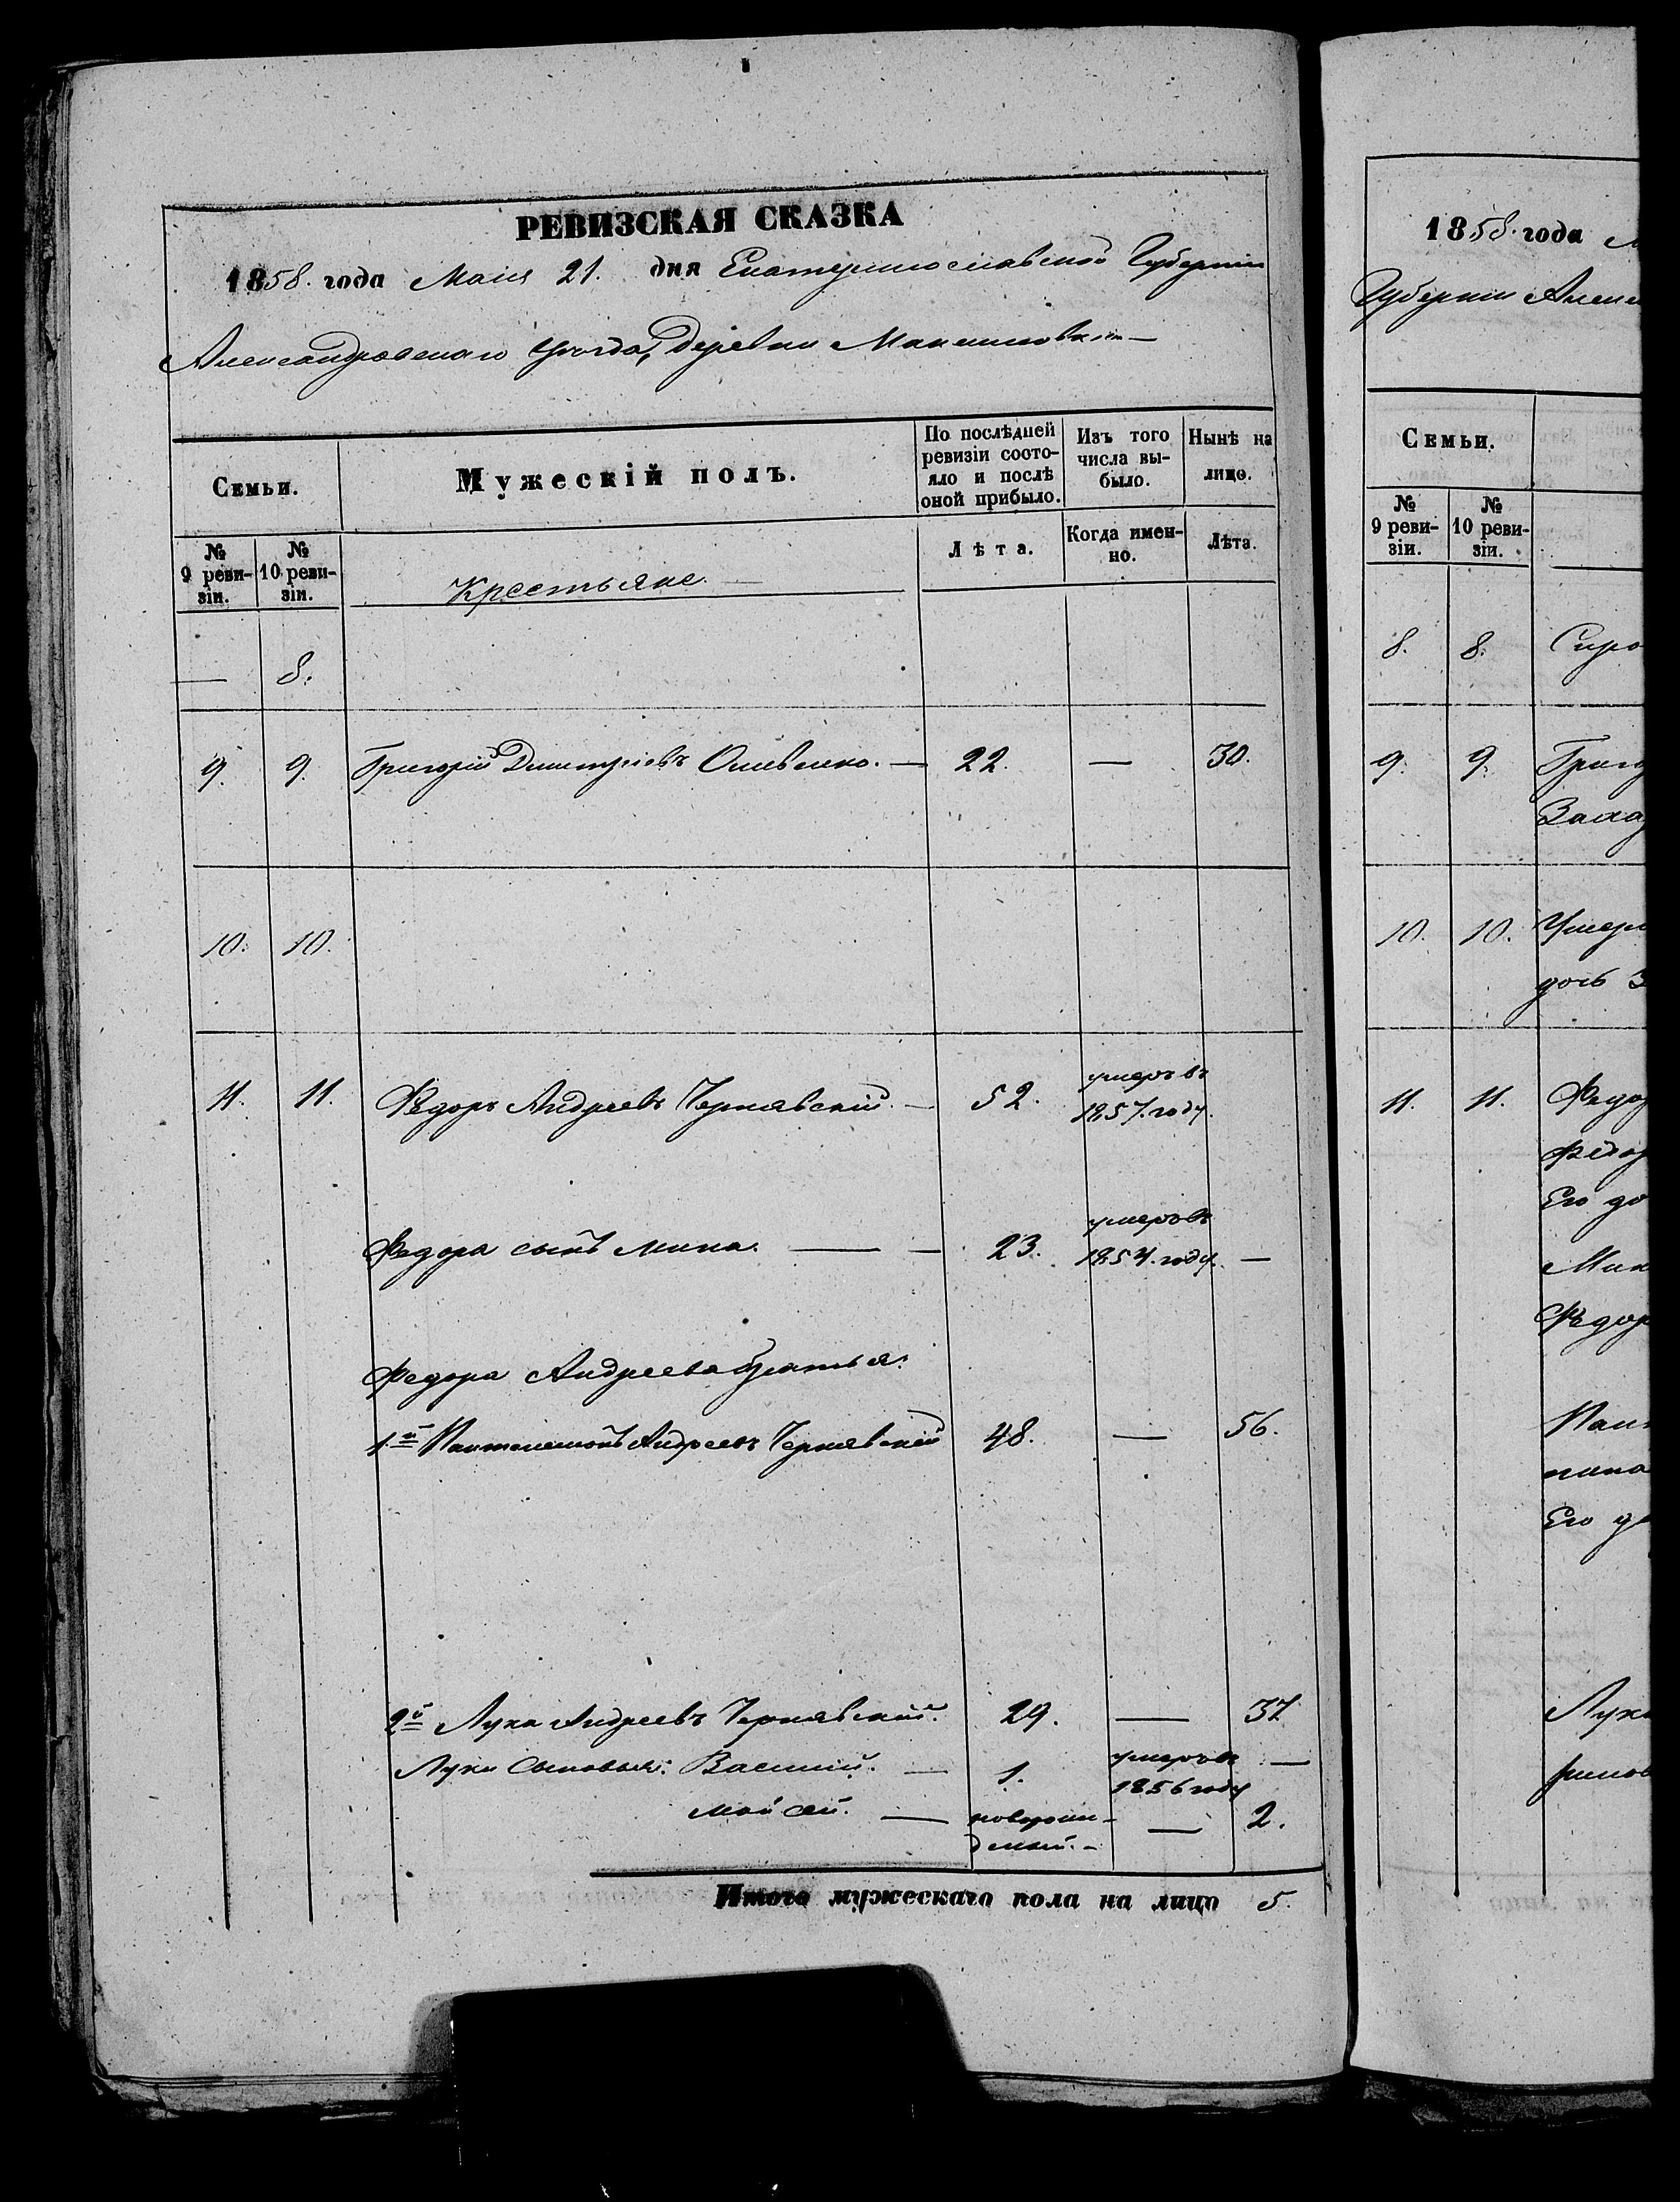 РЕВИЗСКАЯ СКАЗКА
1858. года Маія 21. дня Екатеринославской Губерніи
Александровскаго уѣзда, Деревни
Семьи.
Мужескій полъ.
По послѣдней ревизіи состо-
яло и послѣ
оной прибыло.
Изъ того
числа вы-
было.
Нынѣ на
лицо.
№
9 реви-
зіи.
№
10 реви-
зіи.
Крестьяне. —
Лѣта.
Когда имен-
но.
Лѣта.
— 8.
9. 9. Григорій Дмитріевъ — 22. — 30.
10. 10.
11. 11. Ѳедоръ Андреевъ Чернявскій. — 52. умеръ въ
1857. году.
Федора сынъ Мина. — — 23. умеръ въ
1854. году. —
Федора Андреева братья:
1.й Пантелемонъ Андреевъ Чернявскій 48. — 56.
2й Лука Андреевъ Чернявскій. 29. — 37.
Луки Сыновья: Василій. — 1. умеръ въ
1856 году —
Мойсей. — новорож-
денный. — — 2.
Итого мужескаго пола на лицо 5.
1858. года
Губерніи
Семьи.
№
9 реви-
зіи.
№
10 реви-
зіи.
8. 8.
9. 9.
10. 10.
дочь
11. 11.
Его
Его